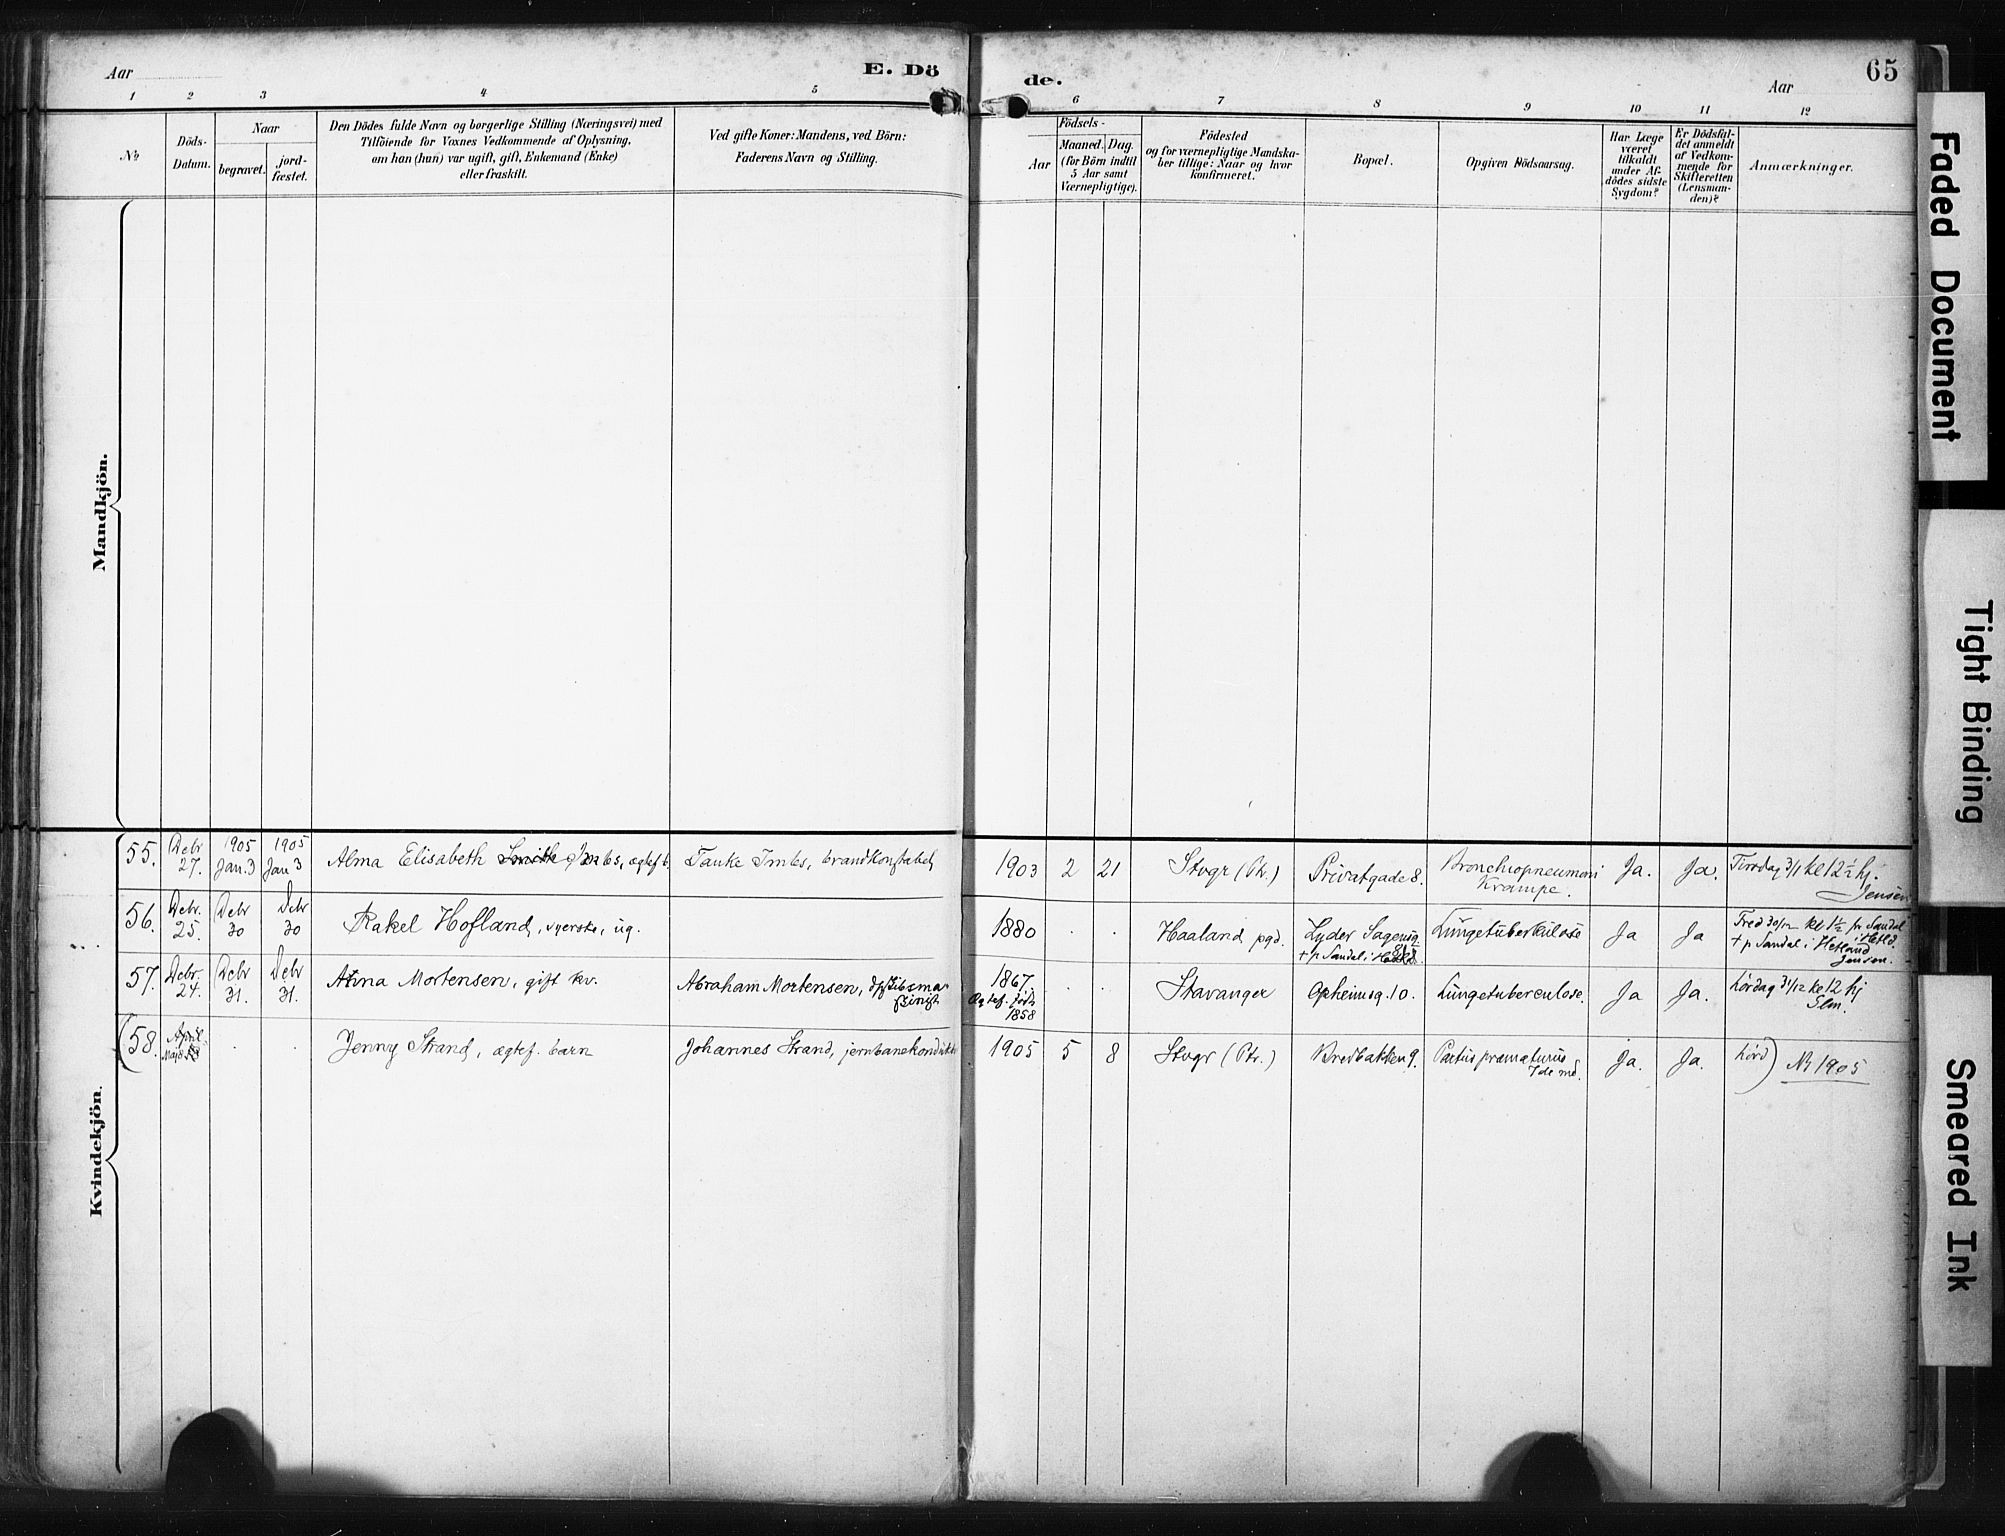 Aar
E. Dö
de.
Aar
65
1 2 3 4 5 6 7 8 9 10 11 12
No
Döds-
Datum.
Naar
begravet.
jord-
fæstet.
Den Dödes fulde Navn og borgerlige Stilling (Næringsvei) med
Tilföiende for Voxnes Vedkommende af Oplysning,
om han (hun) var ugift, gift, Enkemand (Enke)
eller fraskilt.
Ved gifte Koner: Mandens, ved Börn:
Faderens Navn og Stilling.
Aar
Födsels-
Maaned. Dag.
(for Börn indtil
5 Aar samt
Værnepligtige).
Födested
og for værnepligtige Mandska-
ber tillige: Naar og hvor
konfirmeret.
Bopæl.
Opgiven Dödsaarsag.
Har Læge
været
tilkaldt
under Af-
dödes sidste
Sygdom?
Er Dödsfal-
det anmeldt
af Vedkom-
mende for
Skifteretten
(Lensman-
den)?
Anmærkninger.
Mandkjön.
Kvindekjön.
55. Debr 27. 1905 Jan. 3 1905 Jan 3 Alma Elisabeth Imbs, ægtef b. Tauke Imbs, brandkonstabel 1903 2 21 Stvgr (Ptr.) Privatgade 8. Bronchiopneumoni Krampe. Ja. Ja. Tirsdag 3/1 kl 12 1/2 hj. Jensen
56. Debr. 25. Debr 30 Debr 30 Rakel Hofland, syerske, ug. 1880 Haaland pgd. Lyder Sagensg + p Sandal i Lungetuberkulose Ja Ja Fred 30/12 kl 1 1/2 fr Sandal i Hetld. + p Sandal i Hetland Jensen.
57. Debr. 24. Debr 31. Debr 31. Anna Mortensen, gift kv. Abraham Mortensen, 1867. Ægtef. født 1858 Stavanger Opheimsg. 10. Lungetuberculose. Ja Ja. Lördag 31/12 kl 12 hj
(58. April Jenny Strand, ægtef. barn Johannes Strand, jernbanekonduktør 1905 5 8 Stvgr (Ptr.) Bredbakken 9. Partus præmaturus 7de md. Ja. Ja. Lørd) No 1905
Faded Document
Tight Binding
Smeared Ink